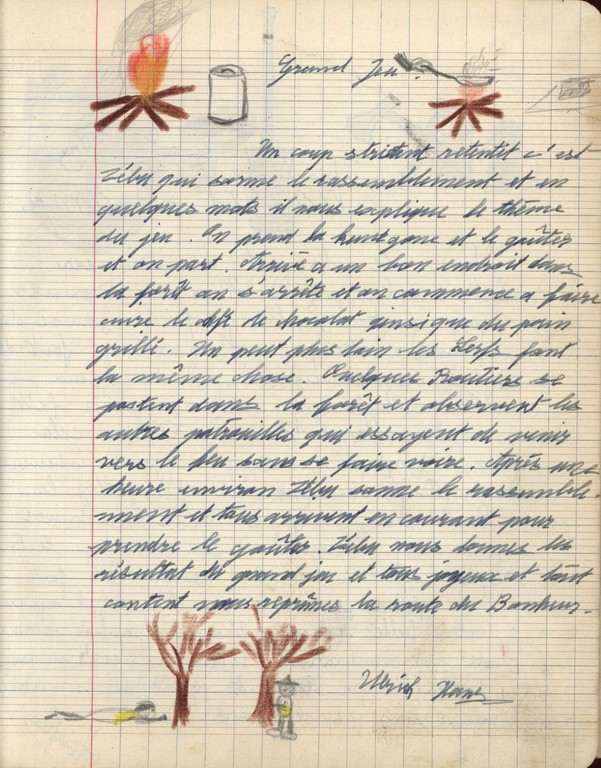 Grand Jeu.
Un coup strident retentit c'est
Zébu qui sonne le rassemblement et en
quelques mots il nous explique le thème
du jeu. On prend la et le goûter
et on part. Arrivé a un bon endroit dans
la forêt on s'arrête et on commence a faire
cuire le de chocolat ainsi que du pain
grillé. Un peut plus loin les Cerfs font
la même chose. Quelques Routiers se
postent dans la forêt et observent les
autres patrouilles qui essayent de venir
vers le feu sans se faire voire. Après une
heure environ Zébu sonne le rassemble-
ment et tous arrivent en courant pour
prendre le goûter. Zébu nous donnes les
résultat du grand jeu et tous joyeux et tout
content nous reprîmes la route du Bonheur.
Ulrich